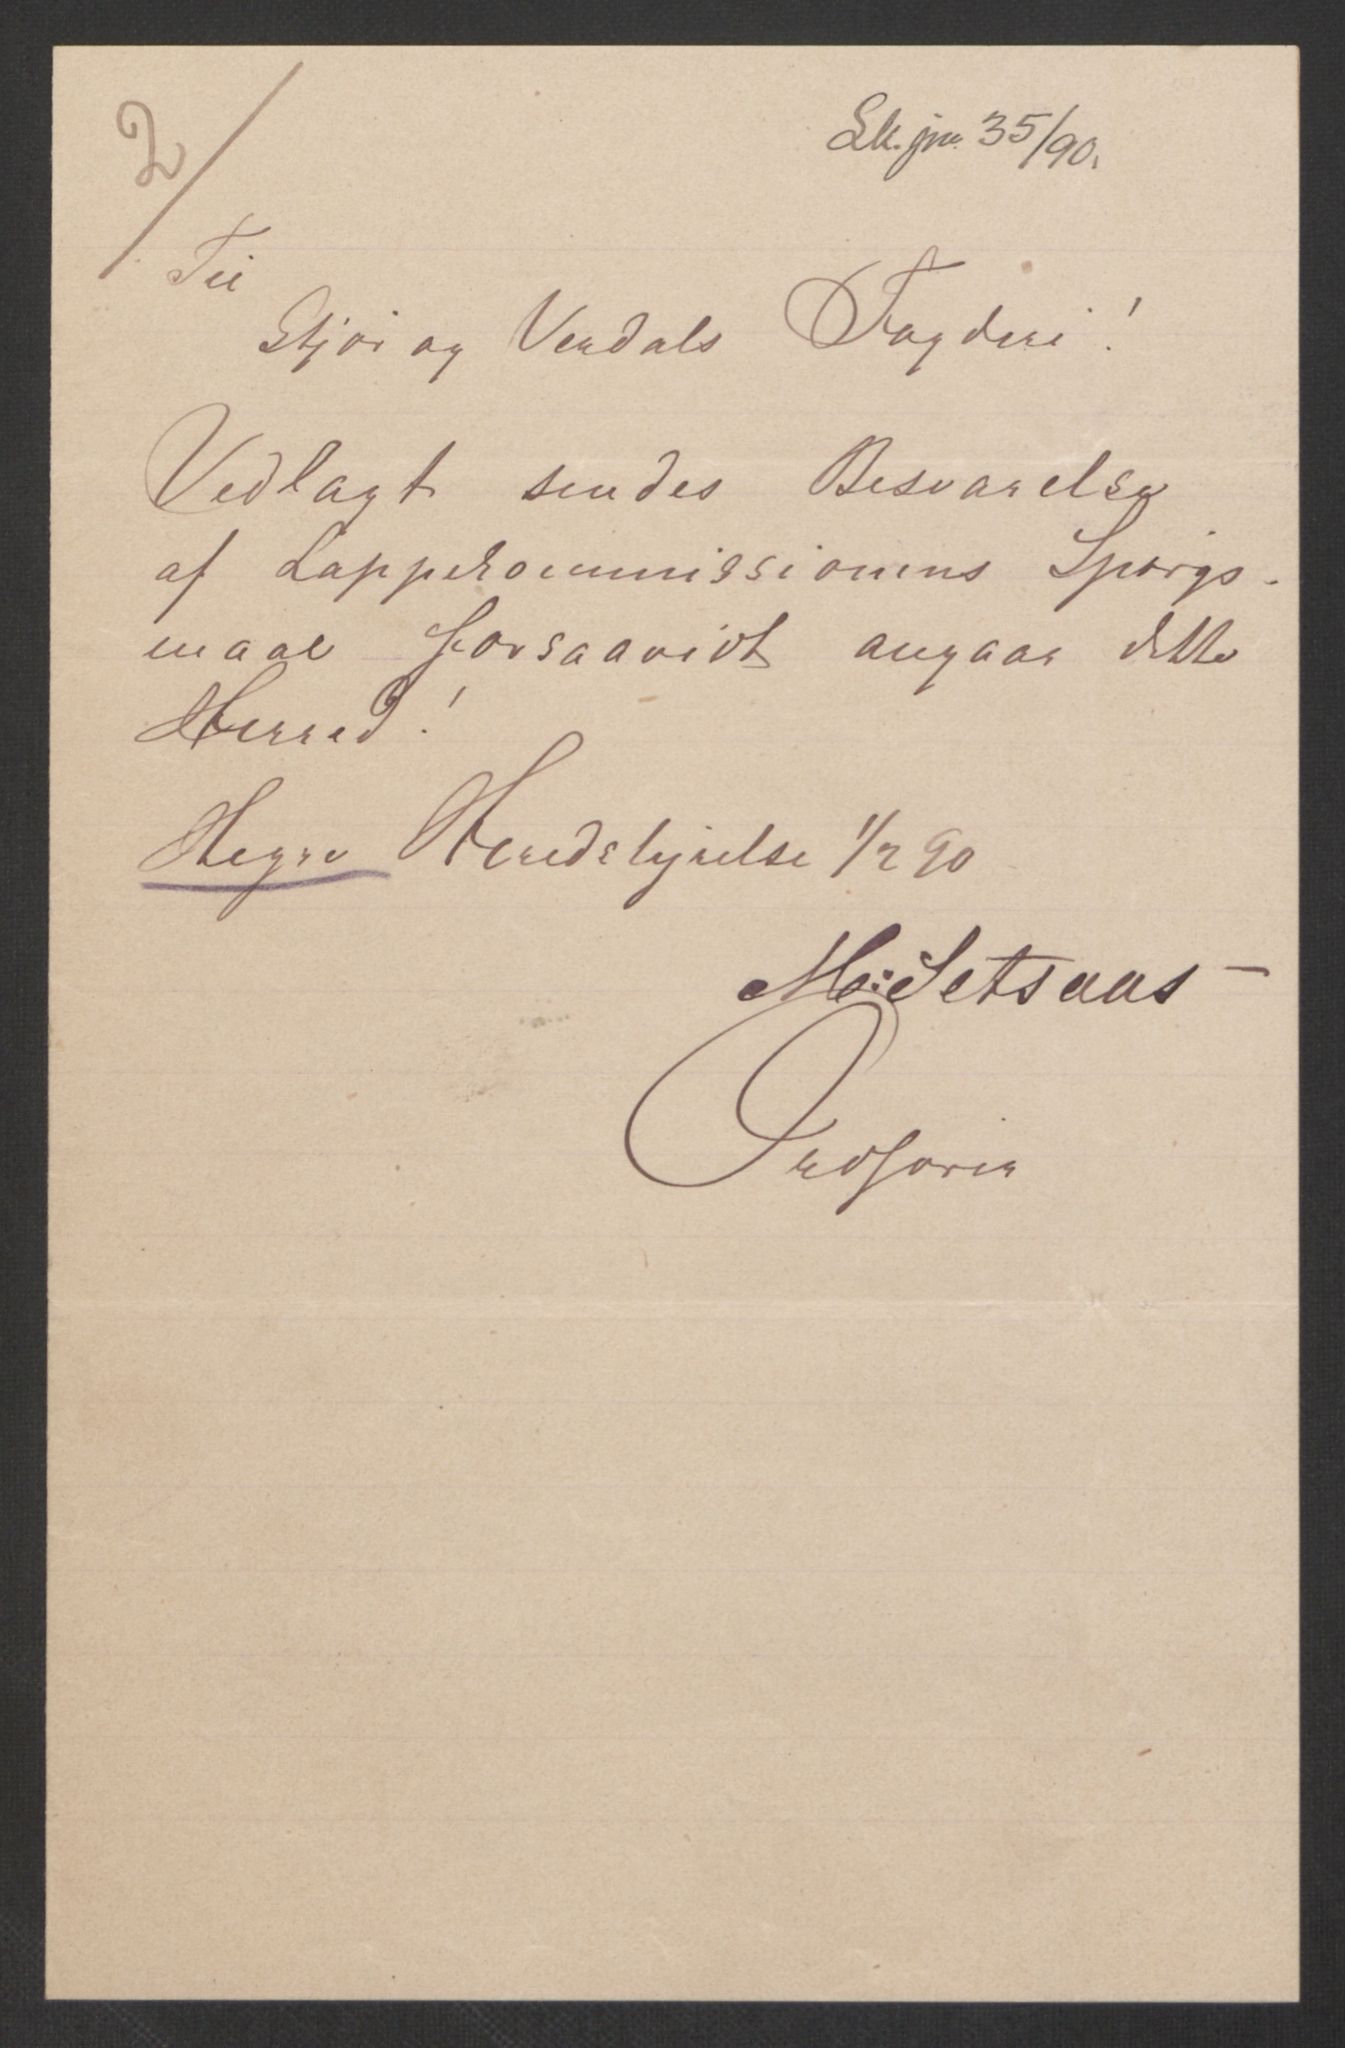 2/
Lk. jnr. 35/90.
Til
Stjør og Verdals Fogderi!
Vedlagt sendes Besvarelse
af Lappekommissionens Spørgs-
maal forsaavidt angaar dette
Herred!
Hegre Herredstyrelse 1/2 90
M: Setsaas
Ordfører